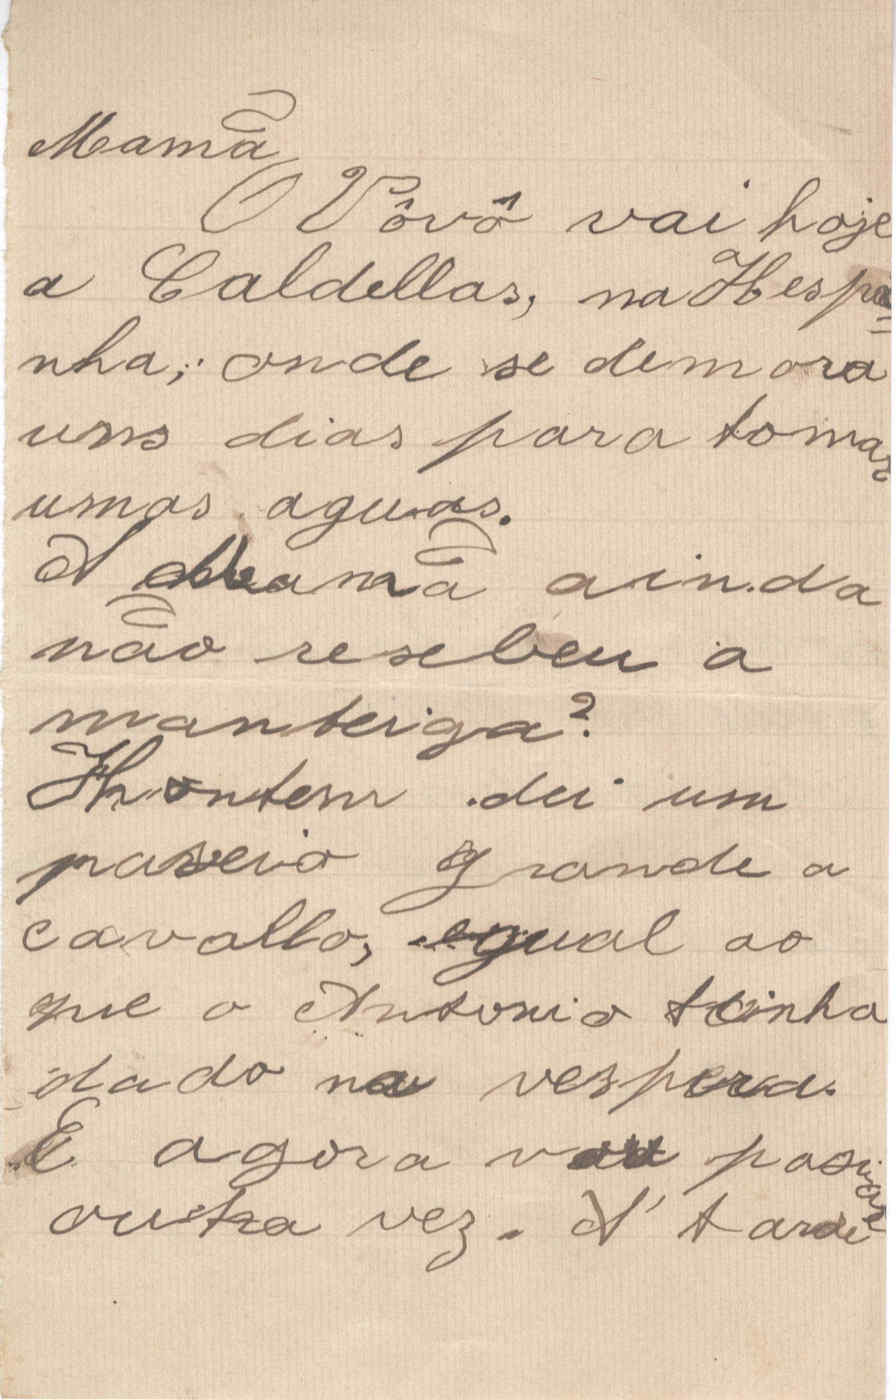 Mamã
O Vôvô vai hoje
a Caldellas, na Hespa-
nha, onde se demora
uns dias para tomar
umas aguas.
A Mamã ainda
não resebeu a
manteiga?
Hontem dei um
paseio grande a
cavallo, egual ao
que o Antonio tinha
dado na vespera.
E agora vou pasiar
outra vez. A' tarde